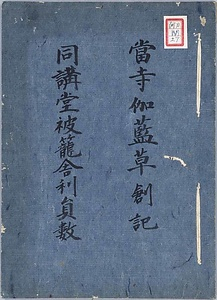 當寺伽藍草創記
同講堂被籠舎利員数